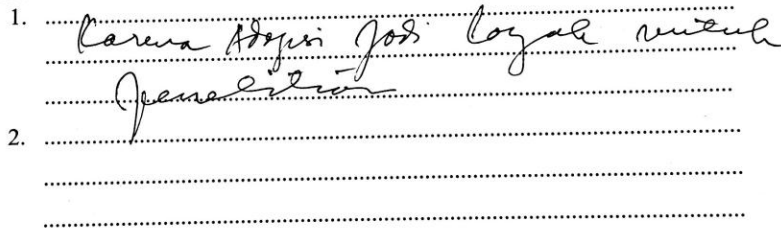 1. Karena Adopsi Jadi Layak untuk
penelitian
2.